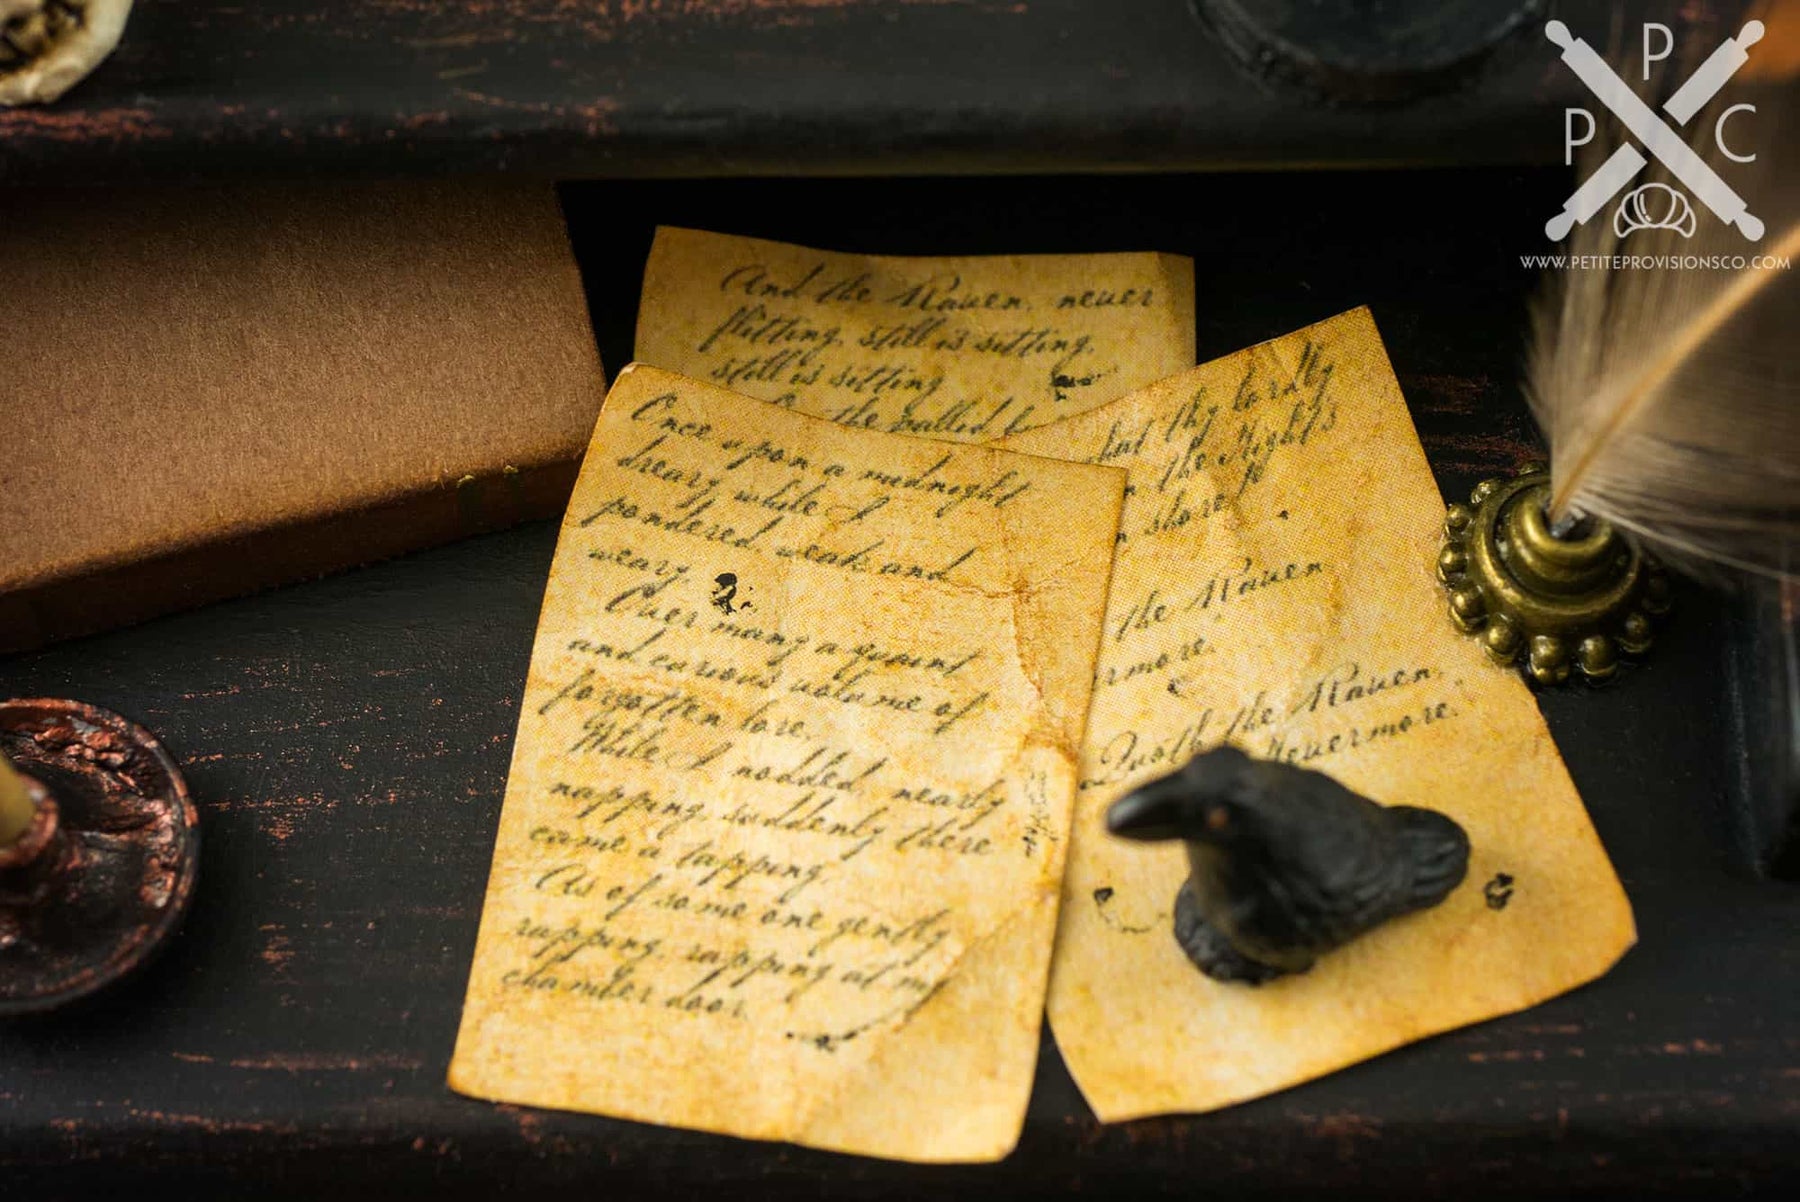 P
P C
WWW.PETITEPROVISIONSCO.COM
And the Raven, never
flitting, still is sitting,
still is sitting
the pallid
Once upon a midnight
dreary, while I
pondered, weak and
weary,
Over many a quaint
and curious volume of
forgotten lore,
While I nodded, nearly
napping, suddenly there
came a tapping,
As of some one gently
rapping, rapping at my
chamber door.
hat thy lordly
n the Night's
n shore
the Raven
ermore.
Quoth the Raven,
Nevermore.